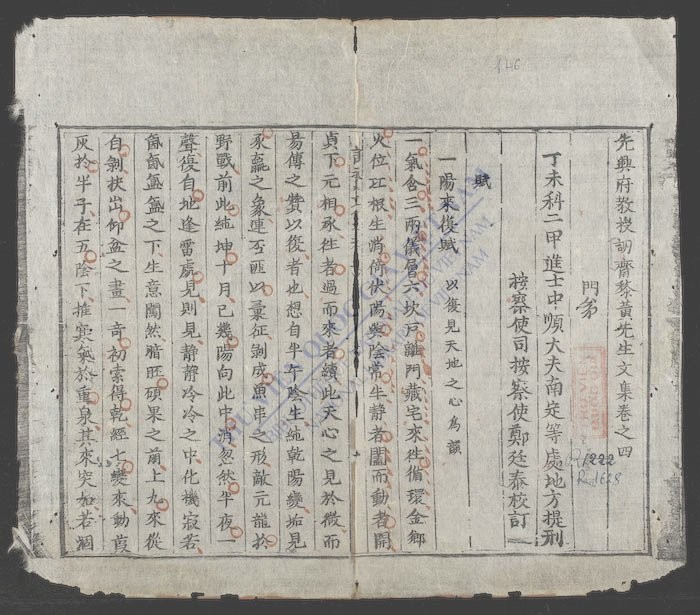 先興府教授訒齋黎黃先生文集卷之四
門弟
丁未科二甲進士中順大夫南定等處地方提刑
按察使司按察使鄭廷泰校訂
賦
一陽來復賦 以復見天地之心為韻
一氣含三兩儀層六坎戶離門藏宅來徃循環金鄉
火位互根生消倚伏陽與陰常生静者闔而動者開
貞下元相承徃者過而來者續此天心之見於微而
易傳之贊以復者也想自半午陰生純乾陽變垢見
豕羸之象連否匪以彙征剝成魚串之形敵元龍於
野戰前此純坤十月已幾陽向此中消忽然半夜一
聲復自地逢雷處見則見静静冷冷之中化機寂若
氤氤氳氳之下生意闖然腊旺碩果之前上九來從
自剝扶出仰盆之畫一奇初索得乾經七變來動葭
灰於半子在五陰下推寞
於重泉其來突如若涸
146
R.1222
R.1628
THU VIEN QUOC GIA VIET NAM